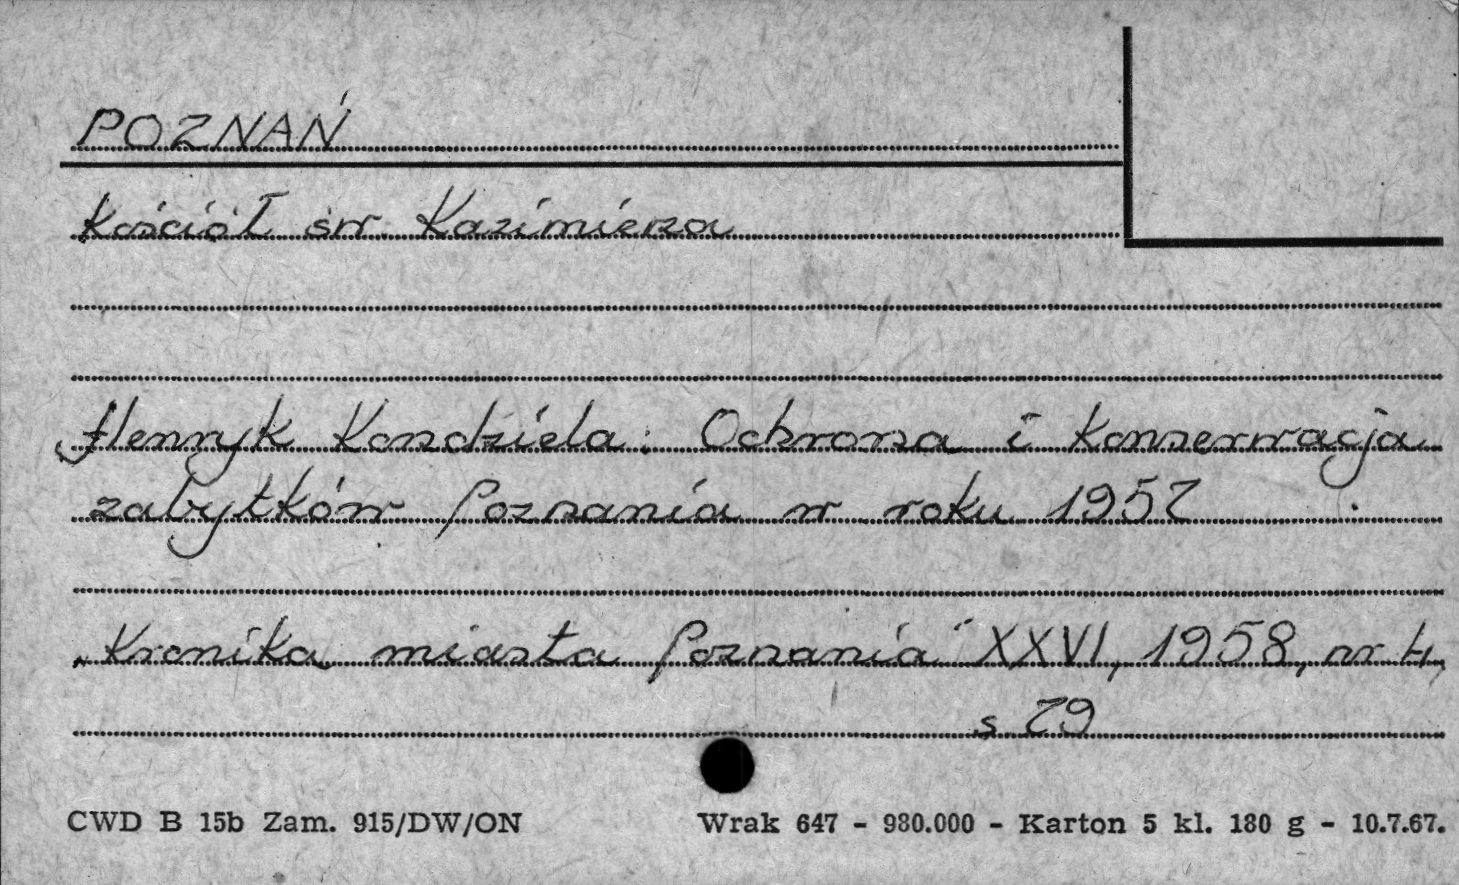 POZNAŃ
Kościół św. Kazimierza
Henryk Kondziela: Ochrona i konserwacja
zabytków Poznania w roku 1957.
„Kronika miasta Poznania" XXVI, 1958, nr 4,
s 79
CWD B 15b Zam. 915/DW/ON Wrak 647 - 980.000 - Karton 5 kl. 180 g - 10.7.67.